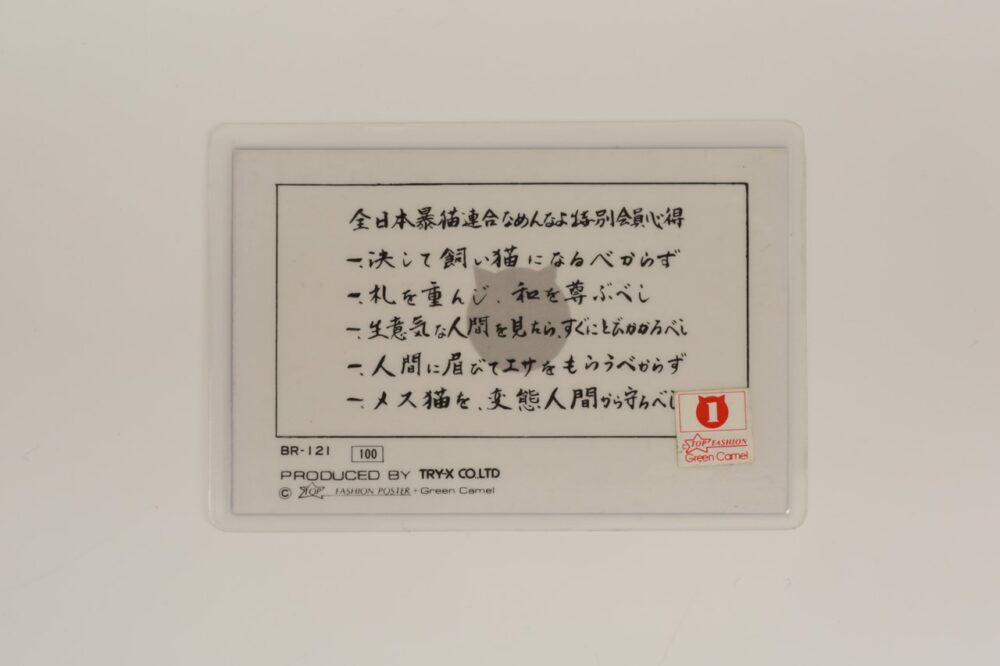 全日本暴猫連合なめんなよ特別会員心得
一、決して飼い猫になるべからず
一、札を重んじ、和を尊ぶべし
一、生意気な人間を見たら、すぐにとびかかるべし
一、人間に眉びてエサをもらうべからず
一、メス猫を、変態人間から守るべし
1
TOP FASHION
Green Camel
BR-121 100
PRODUCED BY TRY-X CO.LTD
© TOP FASHION POSTER + Green Camel